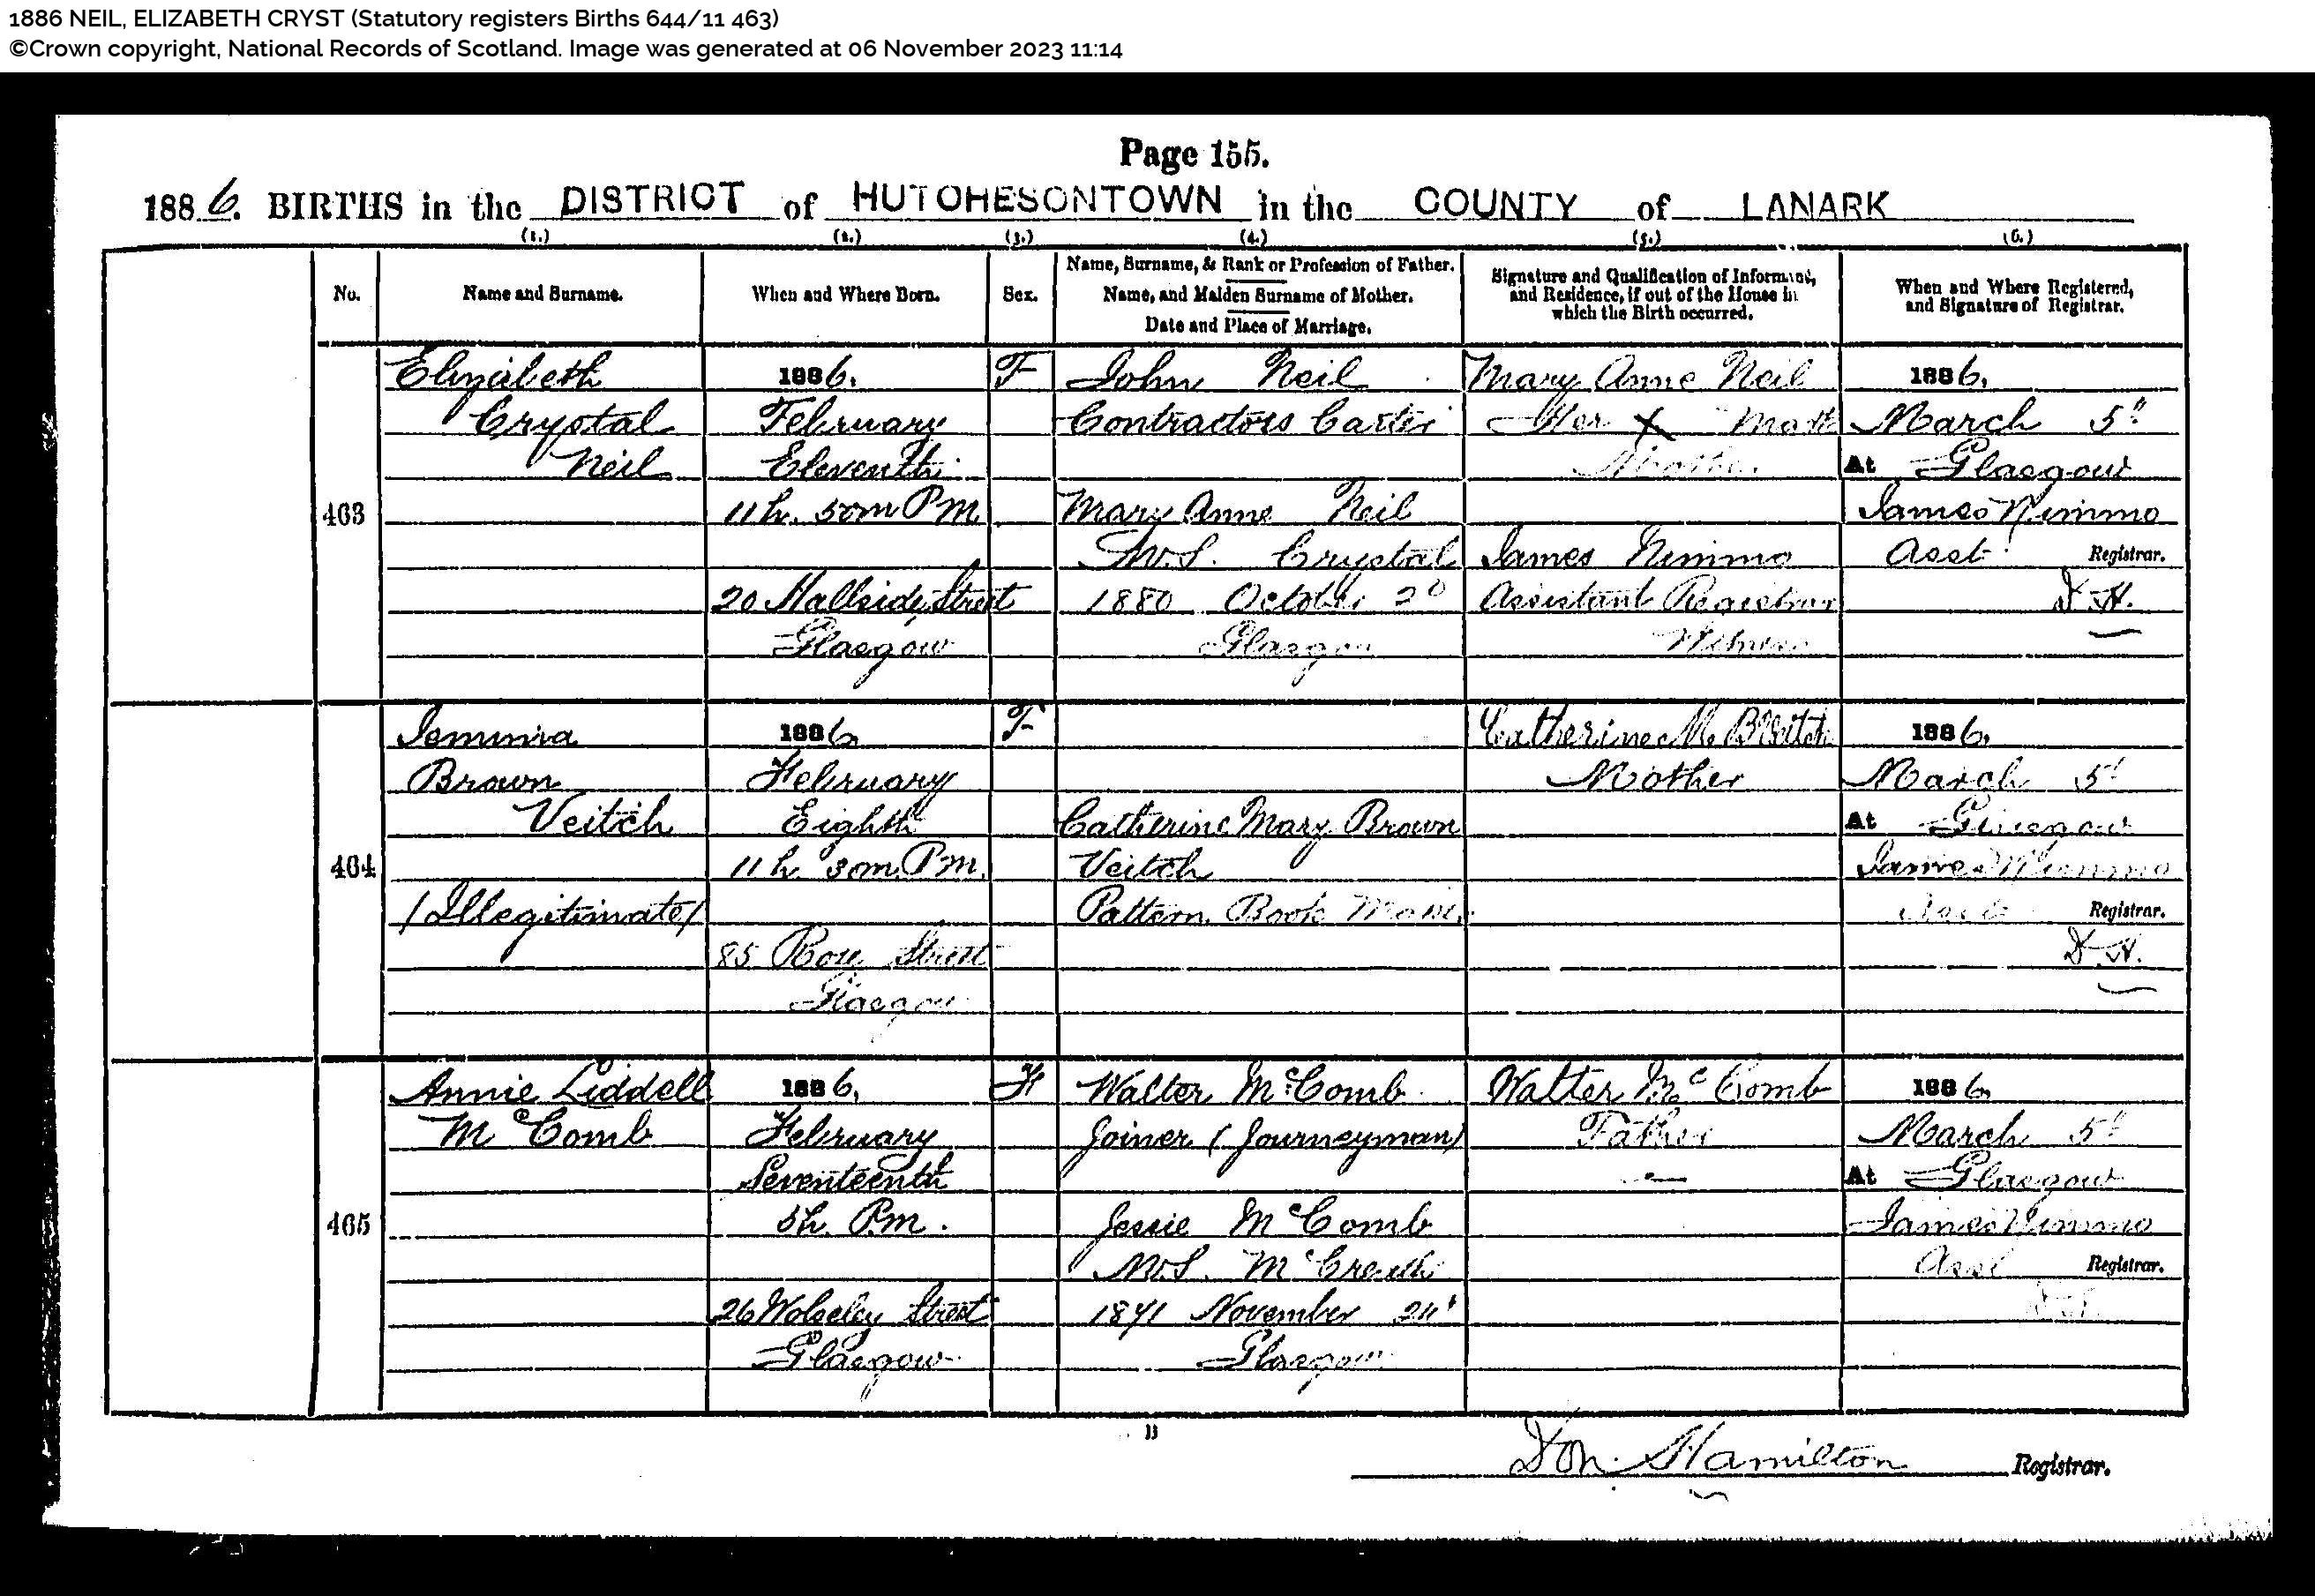 1886 NEIL, ELIZABETH CRYST (Statutory registers Births 644/11 463)
©Crown copyright, National Records of Scotland. Image was generated at 06 November 2023 11:14
Page 155.
1886. BIRTHS in the DISTRICT of HUTCHESONTOWN in the COUNTY of LANARK
(1.) (2.) (3.) (4.) (5.) (6.)
No.
Name and Surname.
When and Where Born.
Sex.
Name, Surname, & Rank or Profession of Father.
Name, and Maiden Surname of Mother.
Date and Place of Marriage.
Signature and Qualification of Informant,
and Residence, if out of the House in
which the Birth occurred.
When and Where Registered,
and Signature of Registrar.
463
Elizabeth
Crystal
Neil
1886.
February
Eleventh
11 h. 50m P.M.
20 Hallside Street
Glasgow
F
John Neil
Contractors Carter
Mary Anne Neil
M.S. Crystal
1880 October
Glasgow
Mary Anne Neil
Her X Mark
Mother
James Nimmo
Assistant Registrar
Witness
1886.
March 5th
At Glasgow
James Nimmo
Asst. Registrar.
D. H.
464
Jemima
Brown
Veitch
(Illegitimate)
1886.
February
Eighth
11 h. 30m. P.M.
85 Rose Street
Glasgow
F
Catherine Mary Brown
Veitch
Pattern Book Maker
Catherine M. B. Veitch
Mother
1886.
March 5th
At Glasgow
James Nimmo
Asst. Registrar.
D. H.
465
Annie Liddell
McComb
1886.
February
Seventeenth
5h. P.M.
26 Wolseley Street
Glasgow
F
Walter McComb
Joiner (Journeyman)
Jessie McComb
M.S. McCreath
1871 November 24th
Glasgow
Walter McComb
Father
1886.
March 5th
At Glasgow
James Nimmo
Asst. Registrar.
D. H.
B
Don. Hamilton Registrar.